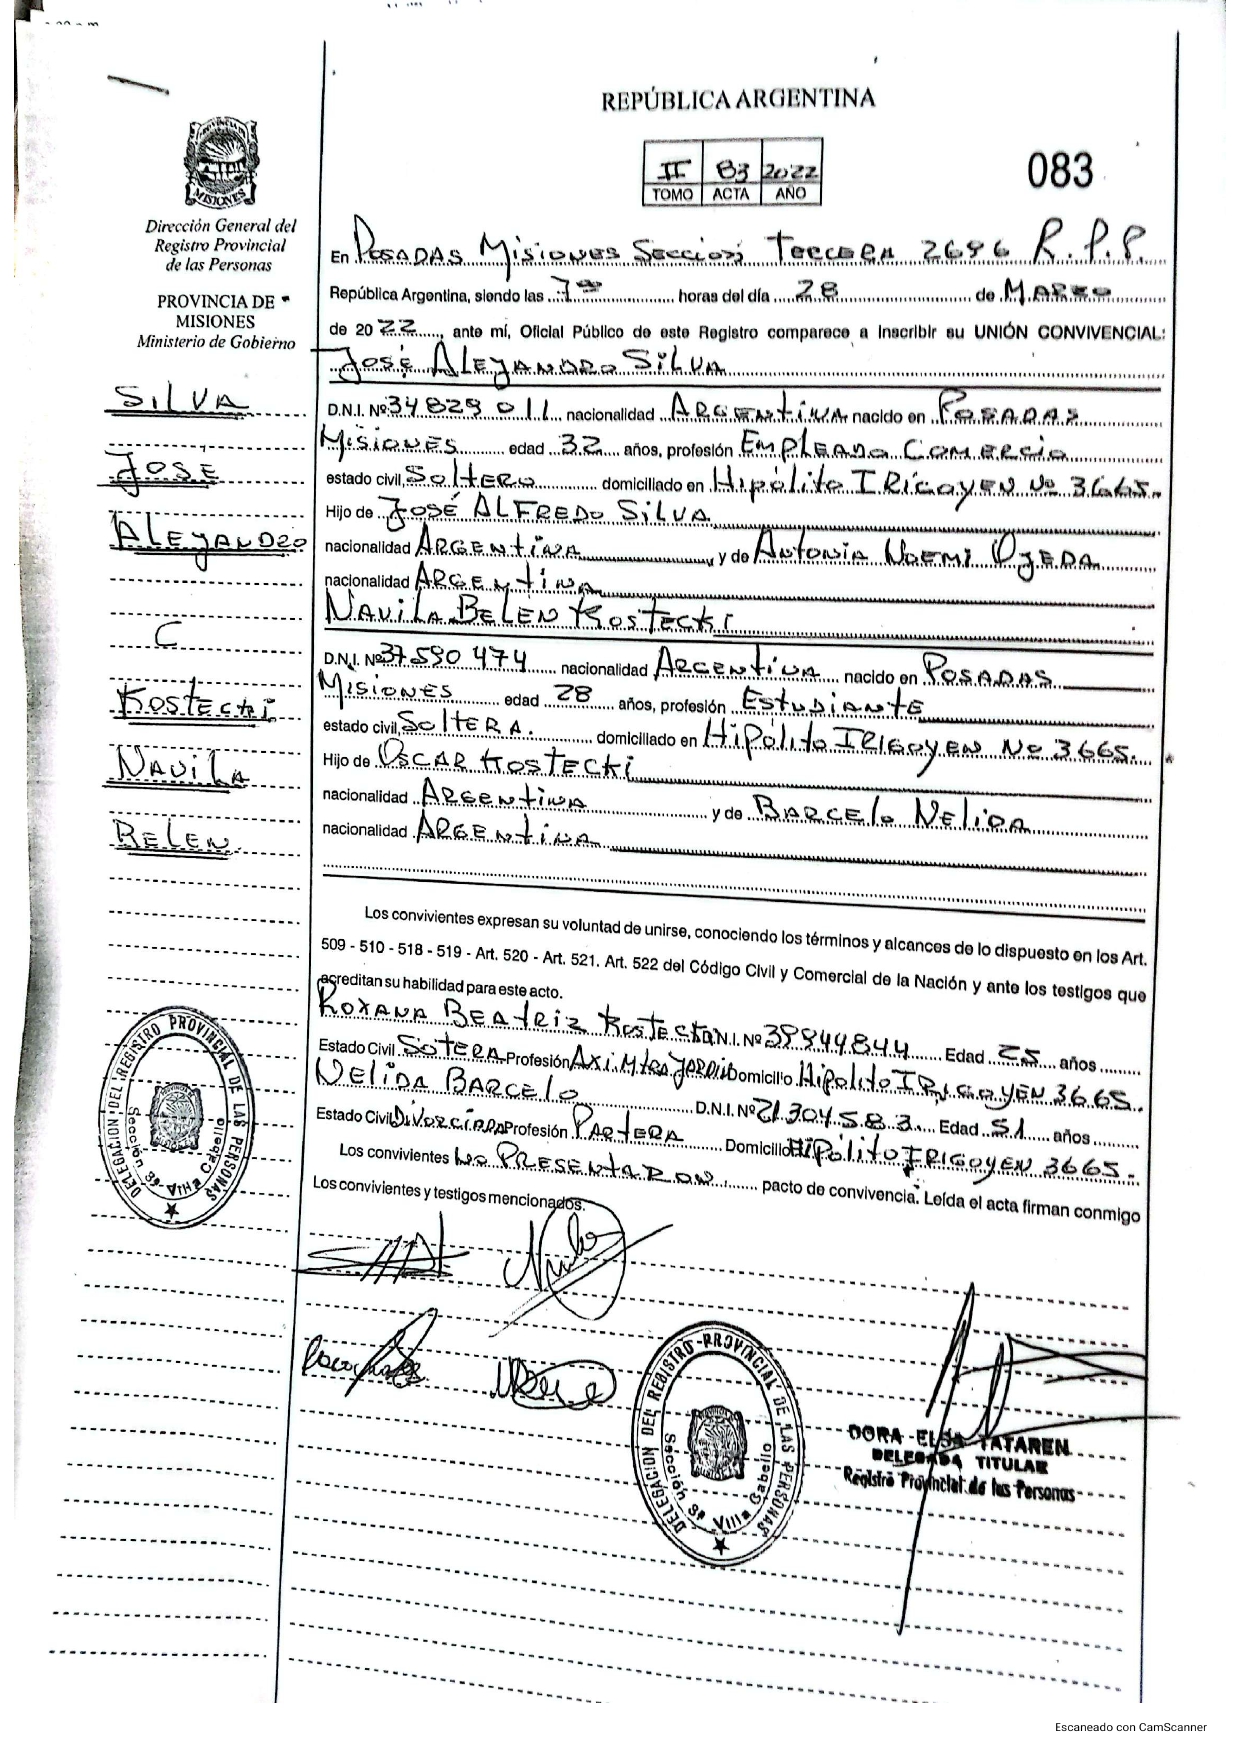 REPÚBLICA ARGENTINA
II 83 2022
TOMO ACTA AÑO
083
PROVINCIA DE
MISIONES
Dirección General del
Registro Provincial
de las Personas
PROVINCIA DE
MISIONES
Ministerio de Gobierno
SILVA
JOSE
ALEJANDRO
C
KOSTECKI
NAVILA
BELEN
En POSADAS MISIONES SECCION TERCERA 2696 R.P.P.
República Argentina, siendo las 7 horas del día 28 de MARZO
de 2022, ante mí, Oficial Público de este Registro comparece a Inscribir su UNIÓN CONVIVENCIAL:
JOSÉ ALEJANDRO SILVA
D.N.I. Nº 34829011 nacionalidad ARGENTINA nacido en POSADAS
MISIONES edad 32 años, profesión EMPLEADO COMERCIO
estado civil, SOLTERO domiciliado en HIPÓLITO IRIGOYEN Nº 3665.
Hijo de JOSÉ ALFREDO SILVA
nacionalidad ARGENTINA y de ANTONIA NOEMI OJEDA
nacionalidad ARGENTINA
NAVILA BELEN KOSTECKI
D.N.I. Nº 37590474 nacionalidad ARGENTINA nacido en POSADAS
MISIONES edad 28 años, profesión ESTUDIANTE
estado civil, SOLTERA. domiciliado en HIPÓLITO IRIGOYEN Nº 3665.
Hijo de OSCAR KOSTECKI
nacionalidad ARGENTINA y de BARCELO NELIDA
nacionalidad ARGENTINA
Los convivientes expresan su voluntad de unirse, conociendo los términos y alcances de lo dispuesto en los Art.
509 - 510 - 518 - 519 - Art. 520 - Art. 521. Art. 522 del Código Civil y Comercial de la Nación y ante los testigos que
acreditan su habilidad para este acto.
ROXANA BEATRIZ KOSTECKI D.N.I. Nº 39944844 Edad 25 años
Estado Civil SOTERA Profesión AXI. MTRA JARDIN Domicilio HIPOLITO IRIGOYEN 3665.
NELIDA BARCELO D.N.I. Nº 21304583 Edad 51 años
Estado Civil DIVORCIADA Profesión PARTERA Domicilio HIPOLITO IRIGOYEN 3665.
Los convivientes NO PRESENTARON pacto de convivencia. Leída el acta firman conmigo
Los convivientes y testigos mencionados.
DELEGACION DEL REGISTRO PROVINCIAL DE LAS PERSONAS
Sección 3ª Villa Cabello
DELEGACION DEL REGISTRO PROVINCIAL DE LAS PERSONAS
Sección 3ª Villa Cabello
DORA ELSA TATAREN
DELEGADA TITULAR
Registro Provincial de las Personas
Escaneado con CamScanner